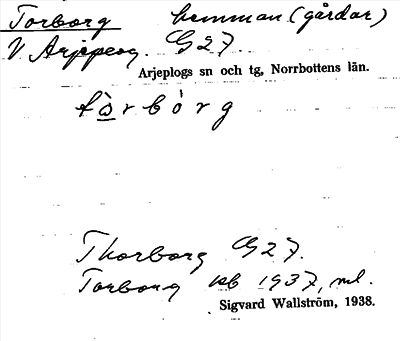 Torborg hemman (gårdar)
V Arjeplog. G27.
Arjeplogs sn och tg, Norrbottens län.
tòrbórg
Thorborg G27.
Torborg jsb 1937, ml.
Sigvard Wallström, 1938.